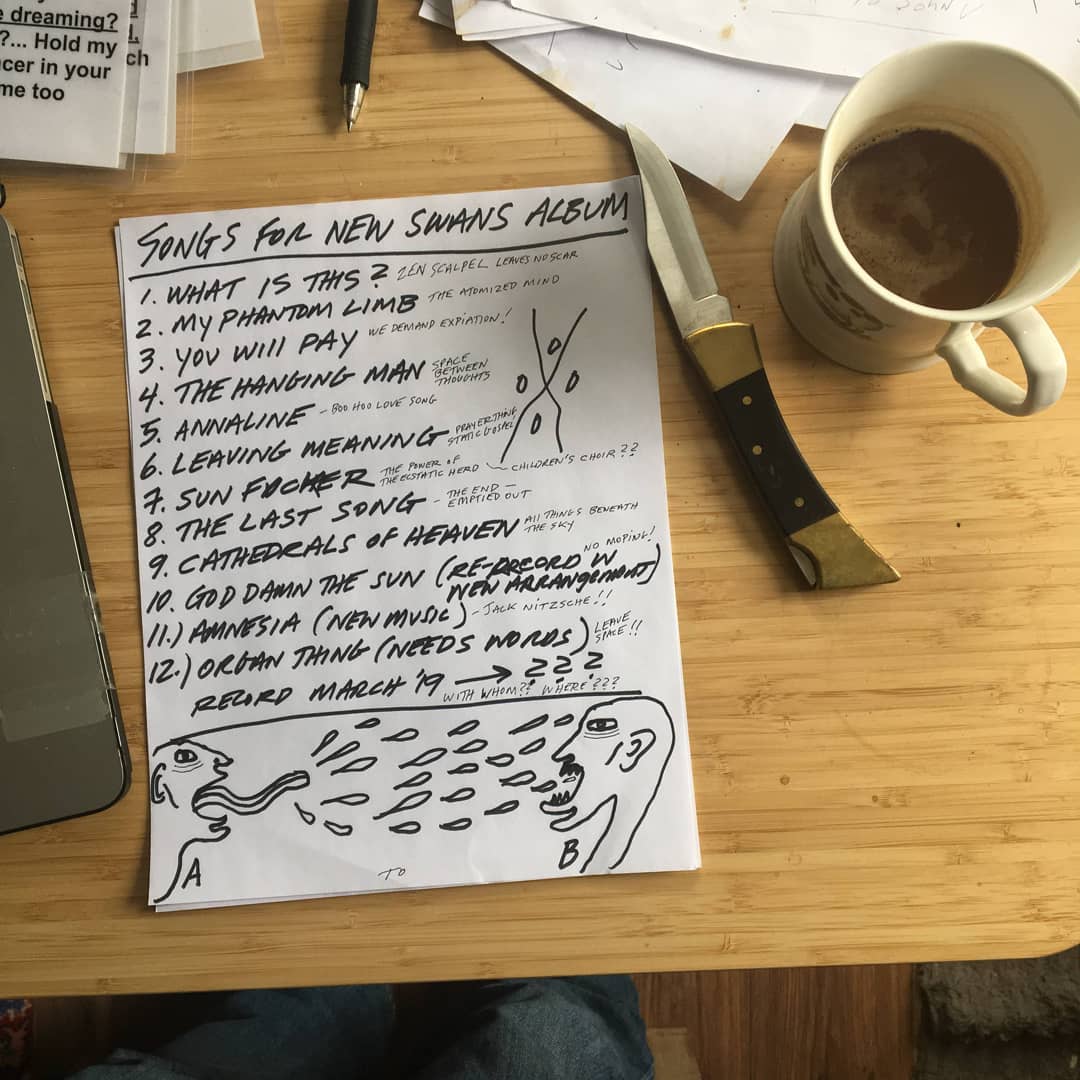 e dreaming?
?... Hold my
cer in your
me too
d.
ch
TO JOHN
SONGS FOR NEW SWANS ALBUM
1. WHAT IS THIS? ZEN SCALPEL LEAVES NO SCAR
2. MY PHANTOM LIMB THE ATOMIZED MIND
3. YOU WILL PAY WE DEMAND EXPIATION!
4. THE HANGING MAN SPACE BETWEEN THOUGHTS
5. ANNALINE - BOO HOO LOVE SONG
6. LEAVING MEANING PRAYER THING, STATIC GOSPEL
7. SUN FUCKER THE POWER OF THE ECSTATIC HERD - CHILDREN'S CHOIR??
8. THE LAST SONG - THE END - EMPTIED OUT
9. CATHEDRALS OF HEAVEN ALL THINGS BENEATH THE SKY
10. GOD DAMN THE SUN (RE-RECORD W NEW ARRANGEMENT) NO MOPING!
11.) AMNESIA (NEW MUSIC) - JACK NITZSCHE!!
12.) ORGAN THING (NEEDS WORDS) LEAVE SPACE!!
RECORD MARCH '19 → ???
WITH WHOM?? WHERE???
A
TO
B